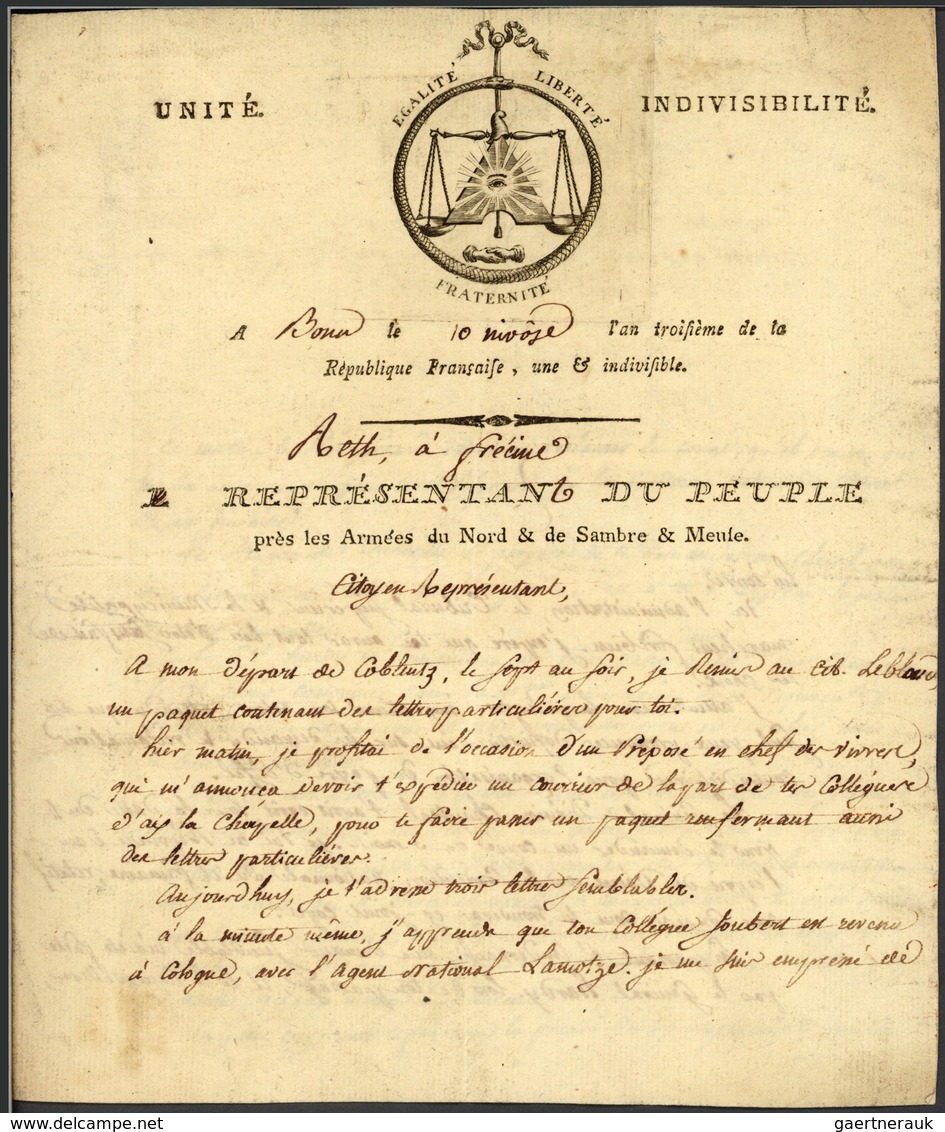 UNITÉ.
EGALITÉ LIBERTÉ
INDIVISIBILITÉ.
FRATERNITÉ
A Bonn le 10 nivôse l'an troisième de la
République Française, une & indivisible.
Reth, à frécine
REPRÉSENTANt DU PEUPLE
près les Armées du Nord & de Sambre & Meuse.
Citoyen Représentant,
A mon départ de Coblentz, le sept au soir, je Remis au cit. Leblanc
un paquet contenant des lettres particuliéres pour toi.
hier matin, je profitai de l'occasion d'un Préposé en chef des vivres,
qui m'annonca devoir t'expédier un courrier de la part de tes Collégues
d'aix la Chapelle, pour te faire passer un paquet renfermant aussi
des lettres particuliéres.
Aujourdhuy, je t'adresse trois lettres Semblables.
à la minute même, j'apprends que ton Collégue Joubert est revenu
à Cologne, avec l'agent National Lamotze. je me suis empressé de
delcampe.net
gaertnerauk